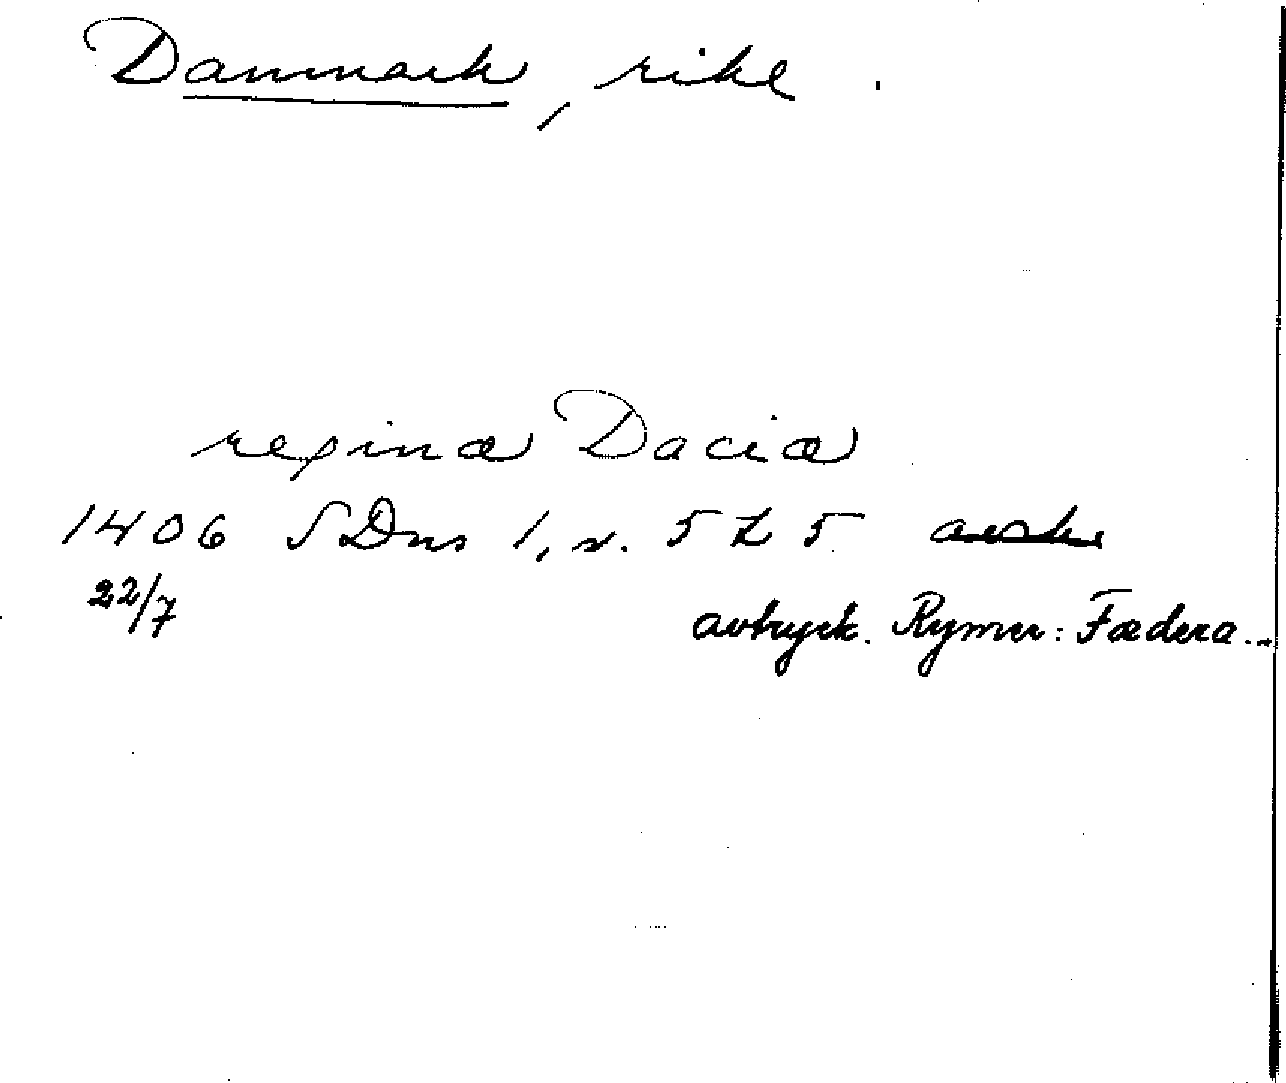 Danmark, rike.
reginæ Daciæ
1406 SDns 1, s. 525 avskr
22/7
avtryck. Rymer: Fœdera...